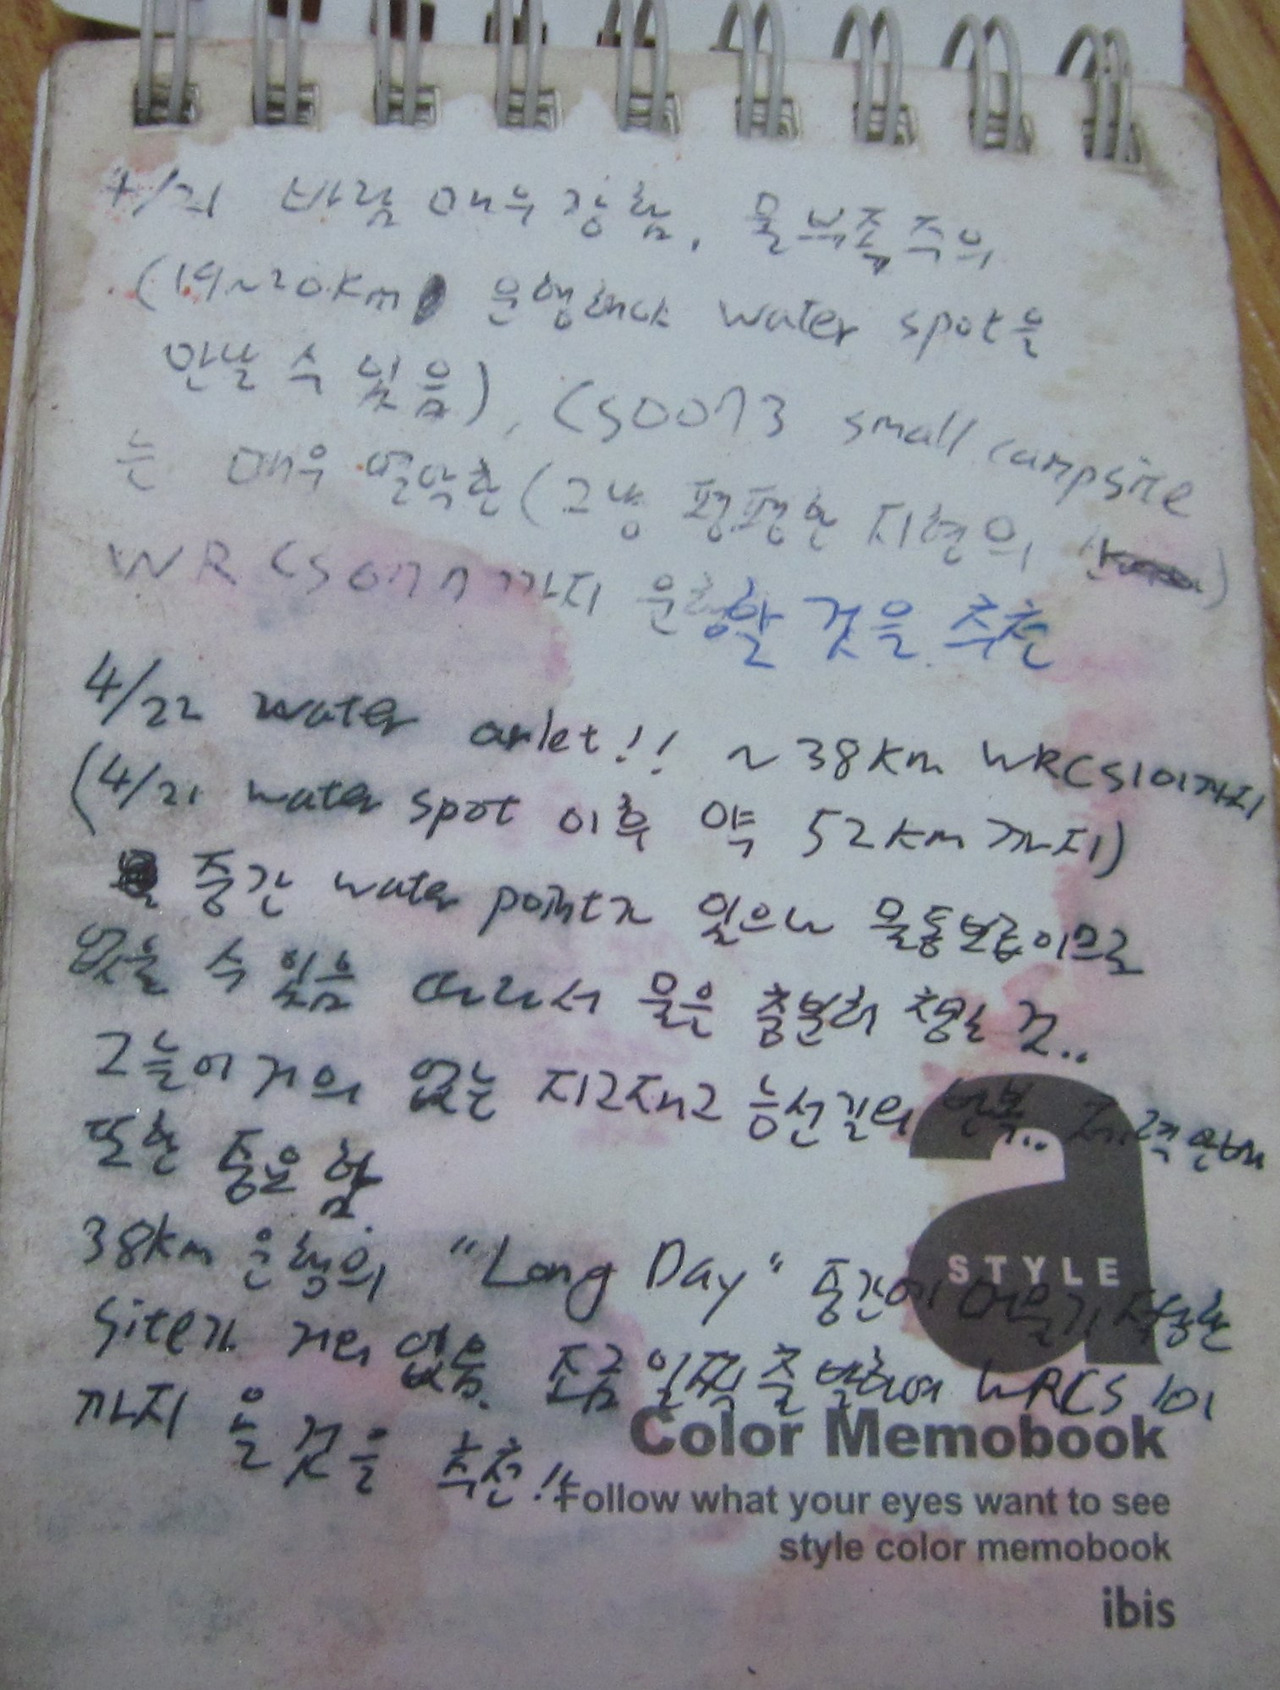 4/21 바람 매우 강함, 물부족 주의
(19~20km 운행해야 water spot을
만날 수 있음), CS0073 small campsite
는 매우 열악함 (그냥 평평한 지형의
WRCS077까지 운행할 것을 추천
4/22 water arlet!! ~38km WRCS101까지
(4/21 water spot 이후 약 52km까지)
중간 water point가 있으나 물통보급이므로
없을 수 있음 따라서 물은 충분히 챙길 것..
그늘이 거의 없는 지리재고 능선길의 반복.. 체력안배
또한 중요함.
38km 운행의 "Long Day" 중간에 머물기 적당한
site가 거의 없음. 조금 일찍 출발하여 WRCS 101
까지 올 것을 추천!!
a
STYLE
Color Memobook
Follow what your eyes want to see
style color memobook
ibis